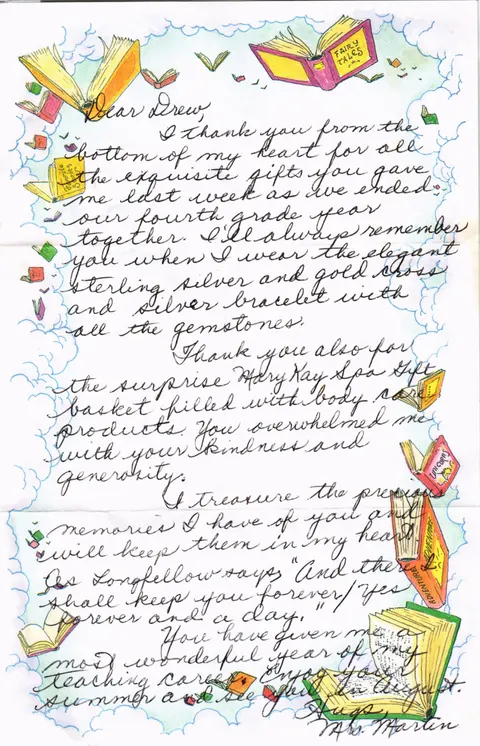 FAIRY TALES
Dear Drew,
I thank you from the
bottom of my heart for all
the exquisite gifts you gave
me last week as we ended
our fourth grade year
together. I'll always remember
you when I wear the elegant
sterling silver and gold cross
and silver bracelet with
all the gemstones.
Thank you also for
the surprise Mary Kay Spa Gift
basket filled with body care
products. You overwhelmed me
with your kindness and
generosity.
I treasure the precious
memories I have of you and
will keep them in my heart.
As Longfellow says, "And there I
shall keep you forever,/Yes
forever and a day."
You have given me a
most wonderful year of my
teaching career. Enjoy your
summer and see you in August.
Hugs,
Mrs. Martin
UNICORNS
ADVENTURE
ADVENTURE